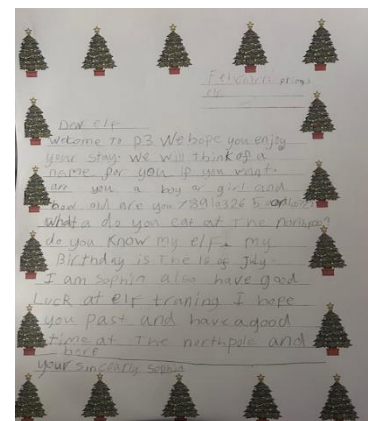 Dear elf
welcome to P3 We hope you enjoy
your stay. We will think of a
name for you if you want.
are you a boy or girl and
how old are you 7891043265
what a do you eat at The northpole?
do you know my elf. my
Birthday is The 15 of July.
I am Sophia also have good
Luck at elf traning I hope
you past and have a good
time at The northpole and
here
your sincerly Sophia